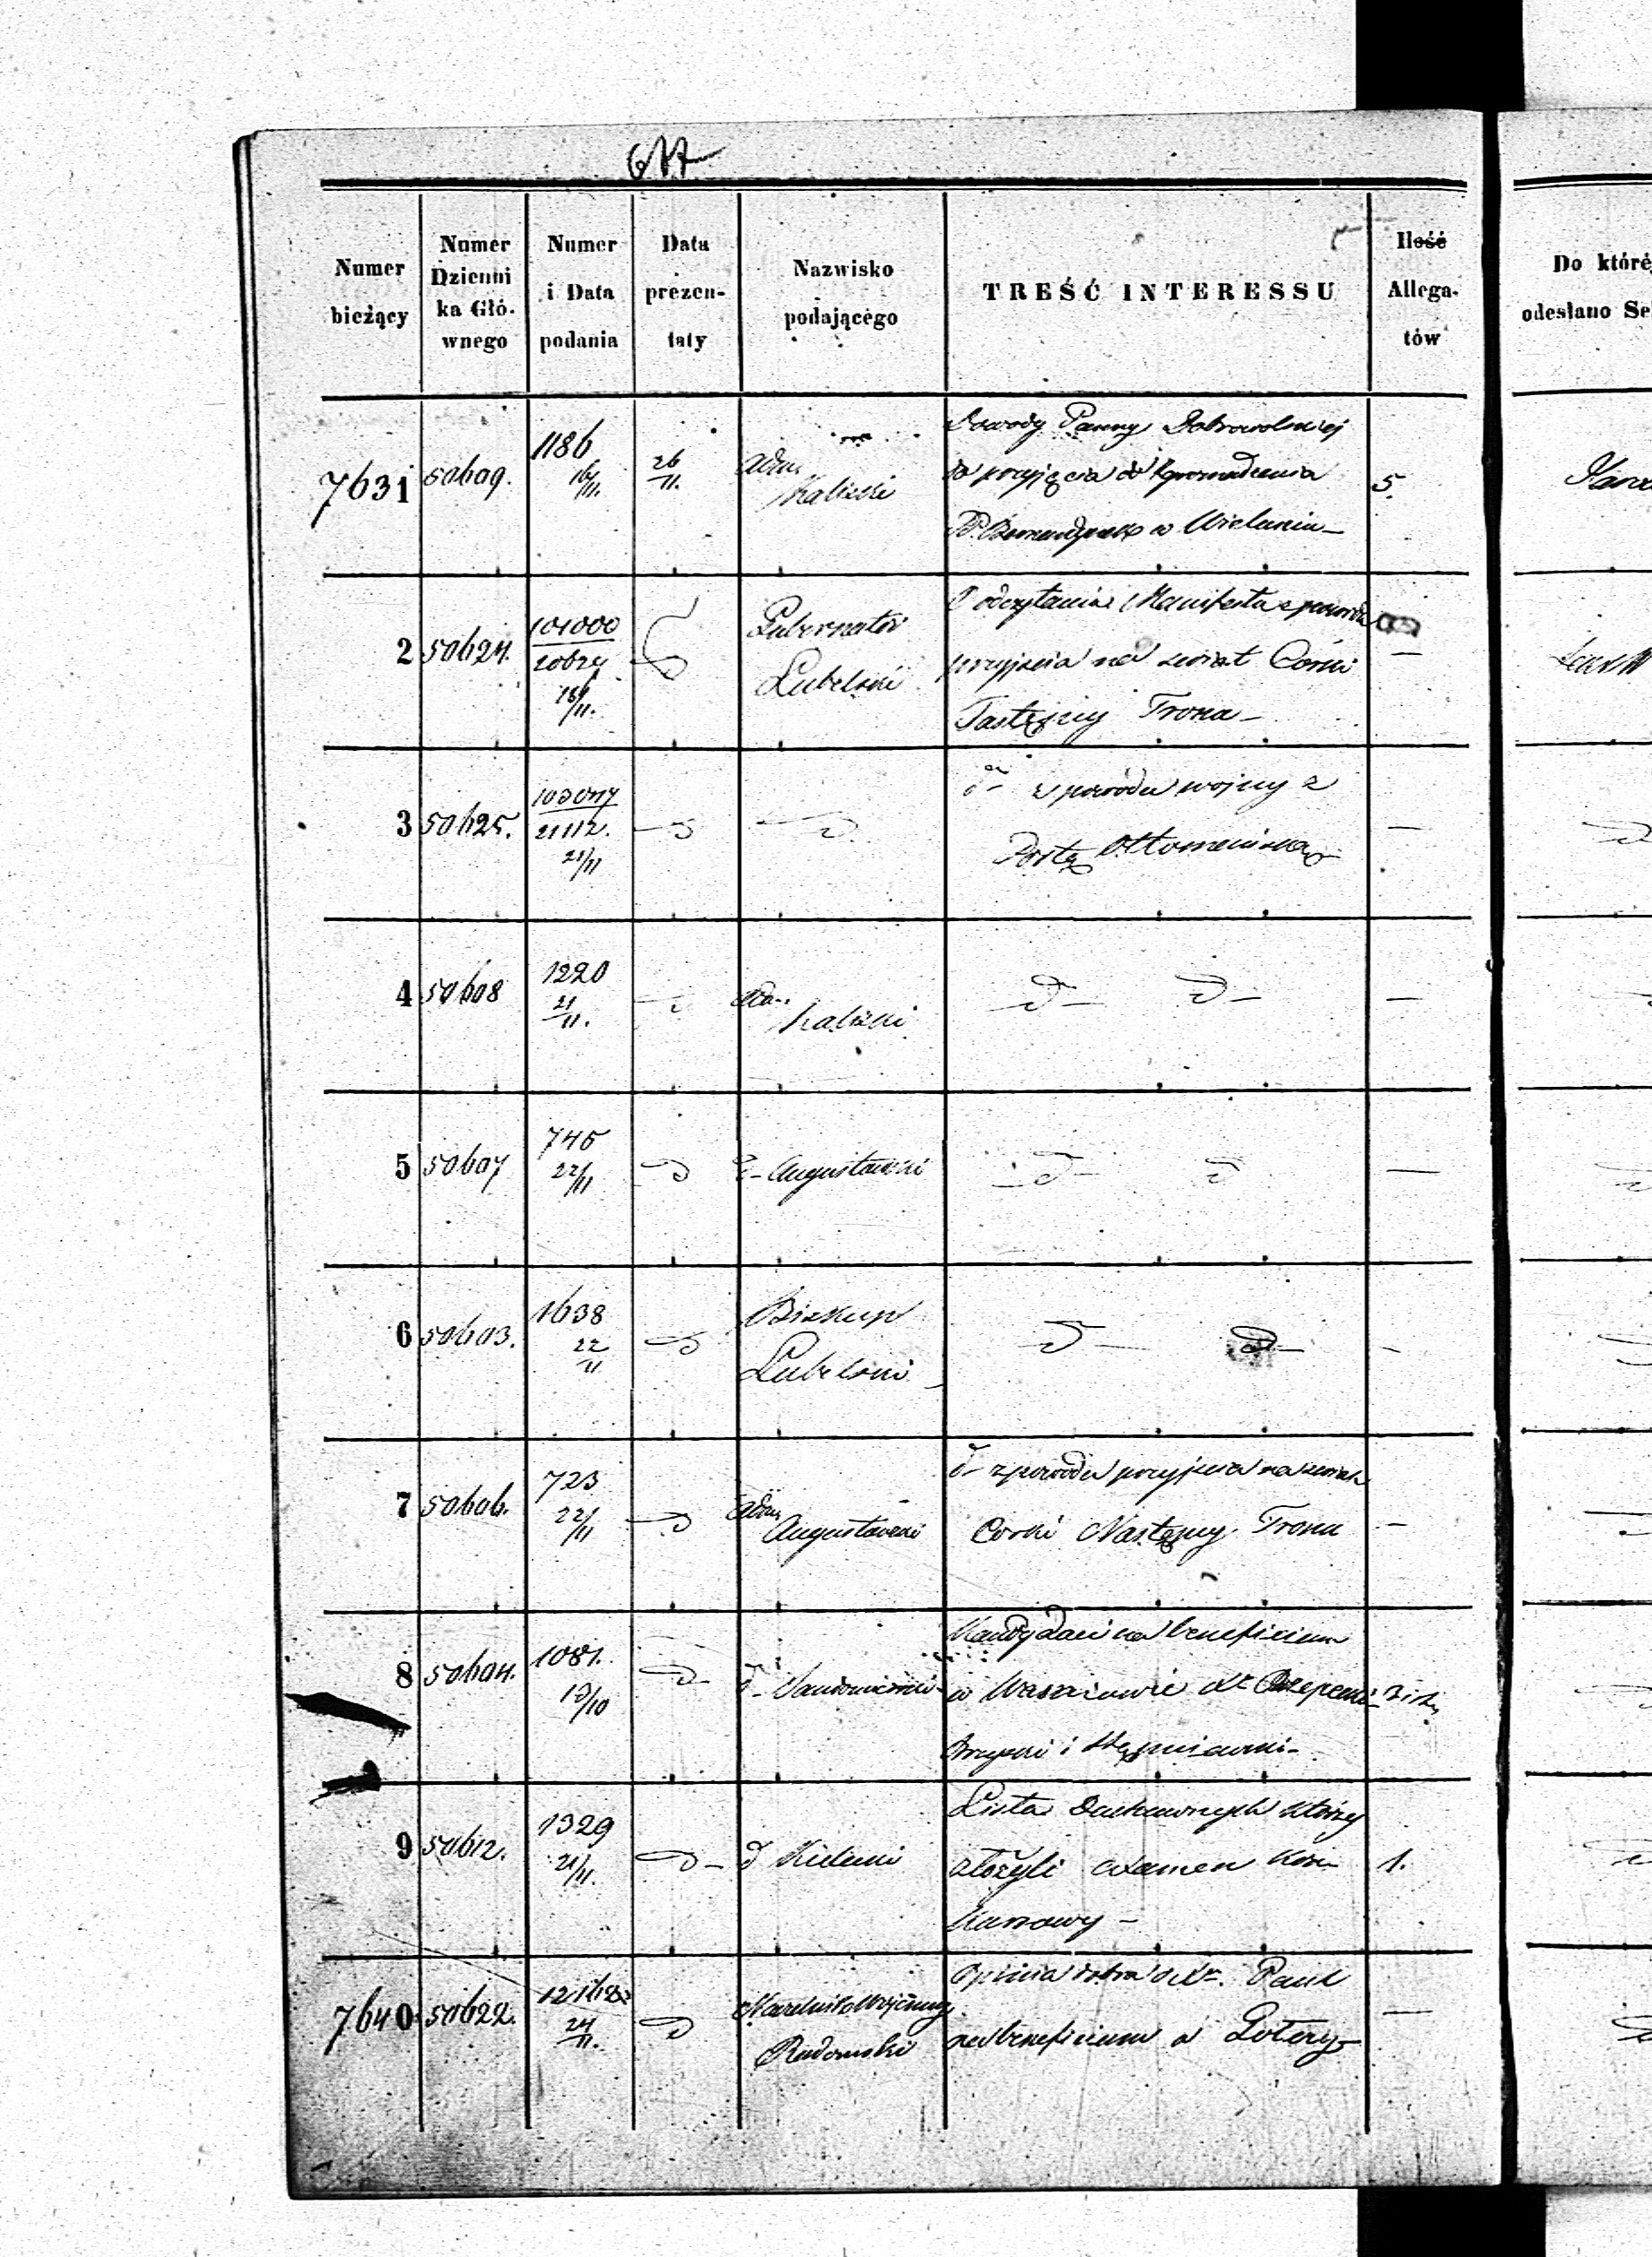 677
Numer bieżący
Numer Dzienni ka Głó- wnego
Numer i Data podania
Data prezen- taty
Nazwisko podającego
TREŚĆ INTERESSU
Ilość Allega- tów
Do któré
odesłano Se
7631 50609. 1186 16/11. 26/11. Adm Kaliski
Dowody Panny Dobrowolskiej
do przyjęcia do Zgromadzenia
w Wieluniu – 5.
2 50624. 101000/20624 18/11. Gubernator Lubelski
O odczytaniu Manifestu z powodu
przyjścia na świat Córki
Następcy Trona – —
3 50625. 21112. 21/11 d
d– z powodu wojny z
Portą Ottomańską —
4 50608 1220 21/11. Adm. Kaliski d – d – —
5 50607 745 22/11 d d– Augustowski d – d —
6 50603. 1638 22/11 d Biskup Lubelski d – d – -
7 50606. 723 22/11 d Adm Augustowski
d– z powodu przyjścia na świat
Córki Następcy Tronu –
8 50604. 1081. 13/10 d– d– Sandomierski
Kandydaci na beneficium
w Waśniowie
i
9 50612. 1329 21/11. d– d Kielecki
Lista Duchownych którzy
złożyli examen kon-
kursowy – 1.
7640 50622. 24/11. d Naczelnik Wojenny Radomski
Opinia dobra o Xs. Pauk
na beneficium w —